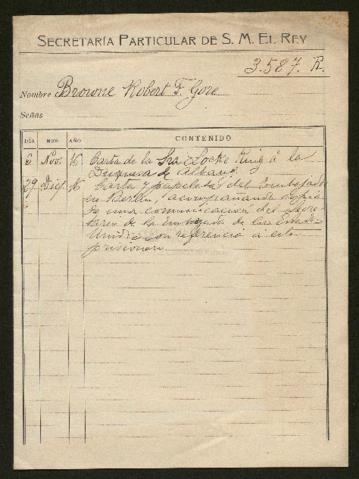 SECRETARÍA PARTICULAR DE S. M. EL REY
3.587. R.
Nombre Browne Robert F. Gore
Señas
DÍA MES AÑO CONTENIDO
6 Nov. 16 Carta de la Sra Locke King á la
Duquesa de Albany.
29 Dic. 16 Carta y papeletas del Embajador
en Berlin, acompañando copia
de una comunicacion del Secre
tario de la Embajada de los Estados
Unidos con referencia á este
prisionero